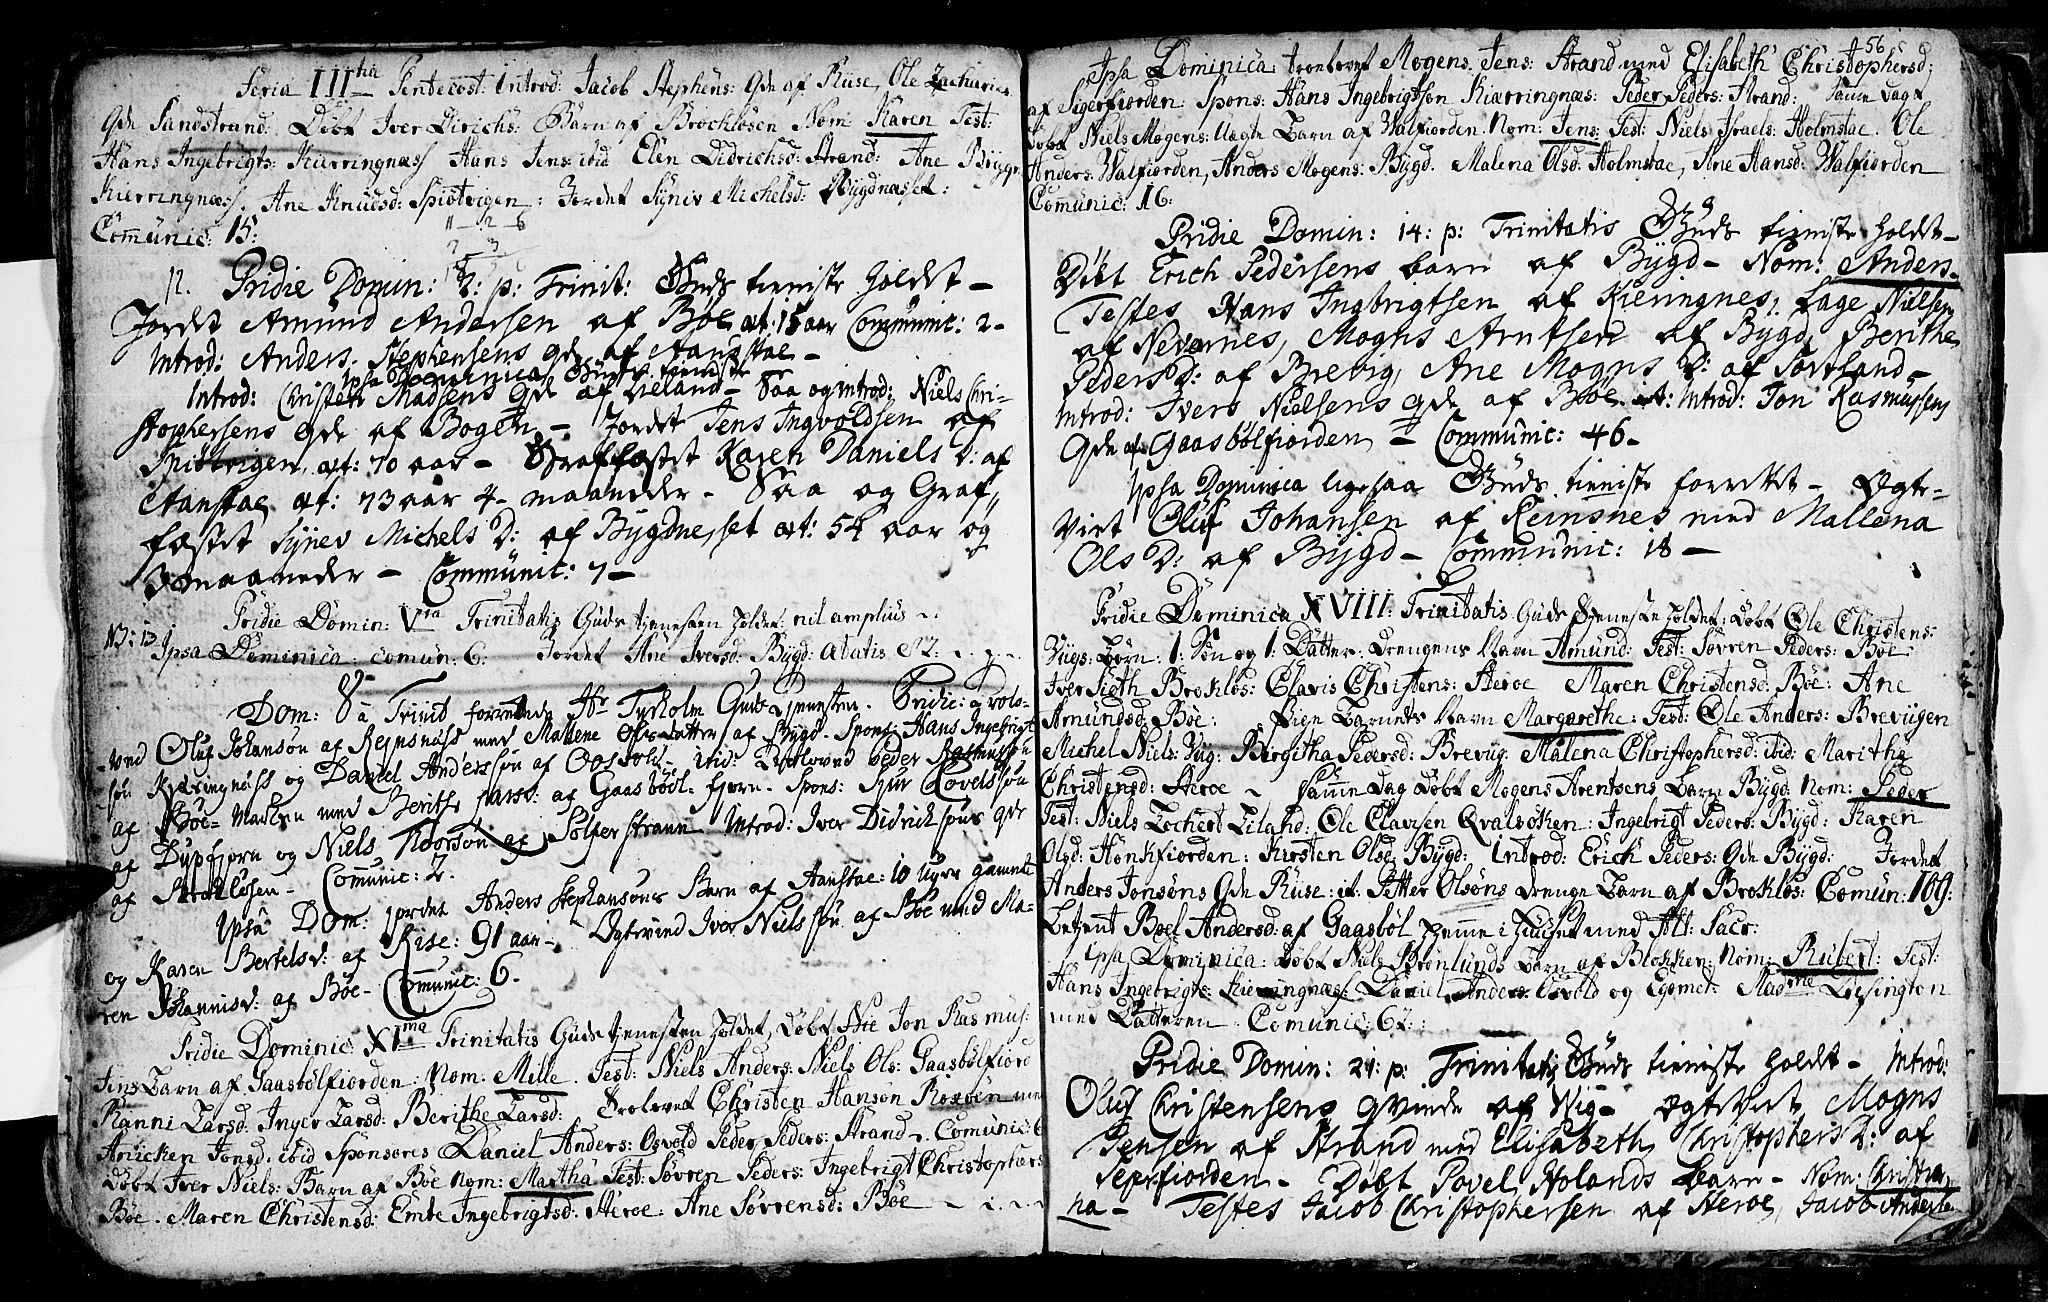 Feria III tia Pentecost: Introd: Jacob Stephens: Qde af Riise, Ole Zacharies
Qde Sandstrand: Døbt Iver Dirichs: Barn af Brockløsen Nom: Karen Test:
Hans Ingebrigts: Kierringnæss Hans Jens: ibid Elen Didrichsd: Strand: Ane
Kierringnæss. Ane Knudsd: Spiøtvigen: Jordet Syniv Michelsd: Bygdnæsset:
Comunic: 15:
Pridie Domin: 2: p: Trinit: Guds tieniste holdt –
Jordet Amund Andersen af Bøe æt: 15 aar Communic: 2 –
Introd: Anders Stephensens Qde af Aanstae –
Ipsa Dominica Guds tieniste
Introd: Christen Madsens Qde af Veland – Saa og introd: Niels Chri-
stophersens Qde af Bogen – Jordet Jens Ingvoldsen af
Spiøtvigen, æt: 70 aar – Graffæstet Karen Daniels D: af
Aanstae æt: 73 aar 4 – maaneder – Saa og Graf-
fæstet Synev Michels D: af Bygdnesset æt: 54 aar og
3 maaneder – Communic: 7 –
Pridie Domin: V ta Trinitatis Guds tjenesten holdet nil amplius
Ipsa Dominica: comun: 6: Jordet Ane Iversd: Bygd: ætatis 82:
Dom: 8 a Trinit forrettede Hr Tyrholm Guds Tjenesten. Pridie: trolo-
ved Oluf Johansøn af Rejnsnæss med Mallene Olesdatter af Bygd. Spons: Hans Ingebrigt
søn Kjæringnæss og Daniel Anderssøn af Oosvold. ibid: Troloved Peder Rasmussøn
af Bøe – med Berithe Larsd: af Gaasbøll fjorn – Spons: Siur Lovelssøn
af Dypfjorn og Niels Thoorsøn af Solferstrann Introd: Iver Didrichsøns Qde
af Brokløsen – Comunic: 2.
Ipsa Dom: jordet Anders Stephansøns Barn af Aanstae: 10 uger gammel
og Karen Bertelsd: af Rise: 91 aar – Ogtevied Iver Nielssøn af Bøe med Ma-
ren Johannisd: af Bøe – Comunic: 6.
Pridie Dominic: XI ma Trinitatis Guds tjenesten holdet, Døbt Jon Rasmus:
sens Barn af Gaasbølfiorden: Nom: Mille. Test: Niels Anders: Niels Ols: Gaasbølfiord
Ranni Larsd: Inger Larsd: Berithe Larsd: Trolovet Christen Hanson med
Anicken Jonsd: ibid Sponsores Daniel Anders: Osvold Peder Peders: Strand. Comunic: 6
Døbt Iver Niels: Barn af Bøe Nom: Martha Test: Søvren Peders: Ingebrigt Christophers
Bøe. Maren Christensd: Emte Ingebrigtsd: Heroe: Ane Søvrensd: Bøe
56
Ipsa Dominica: trolovet Mogens Jens: Strand med Elisabeth Christophersd:
af Sigerfiorden: Spons: Hans Ingebrigtsøn Kierringnæs: Peder Peders: Strand: Samme dag
døbt Niels Mogens: Uægte Barn af Walfiorden. Nom: Jens: Test: Niels Israels: Holmstae. Ole
Anders: Walfiorden, Anders Mogens: Bygd. Malena Olsd: Holmstae, Ane Hansd: Walfiorden
Comunic: 16:
Pridie Domin: 14: p: Trinitatis Guds tieniste holdt –
Døbt Erich Pedersens barn af Bygd – Nom: Anders.
Testes Hans Ingbrigtsen af Kierringnes, Lage Nielsen
af Nevernes, Mogns Arntsen af Bygd, Berithe
Peders D: af Brevig, Ane Mogns D: af Sortland –
Introd: Ivers Nielsens Qde af Bøe it: Introd: Jon Rasmussens
Qde af Gaasbølfiorden – Communic: 46 –
Ipsa Dominica ligesaa Guds tieniste forrettet – Ogte-
viet Oluf Johansen af Reinsnes med Mallena
Ols D: af Bijgd – Communic: 18 –
Pridie Dominica XVIII: Trinitatis Guds Tjeneste holdet: Døbt Ole Christens:
Vigs: Børn: 1: Søn og 1: Datter: Drengens Navn Amund: Test: Søvren Peders: Bøe:
Iver Siøth Brokløs: Clavis Christens: Heroe Maren Christensd: Bøe: Ane
Amundsd: Bøe: Pige Barnets Navn Margarethe: Test: Ole Anders: Breviigen
Michel Niels: Vig: Birgitha Pedersd: Brevig: Malena Christophersd: ibid: Maritha
Christensd: Heroe – Samme Dag Døbt Mogens Arentsens Barn Bygd: Nom: Peder
Test: Niels Lochert Eiland: Ole Clavsen Qvalsøken: Ingebrigt Peders: Bygd: Karen
Olsd: Honkfiorden: Kirsten Olsd: Bygd: Introd: Erich Peders: Qde Bygd: Jordet
Anders Jonsøns Qde Riise: it: Petter Olsøns Drenge Barn af Brokløs: Comun: 109:
Betjent Boel Andersd: af Gaasbøl hjemme i Huuset med Alt: Sacr:
Ipsa Dominica: Døbt Niels Brønlunds Barn af Blokken: Nom: Rubert: Test:
Hans Ingebrigts: Kierringnæs: Daniel Anders: Osvold og Egomet: Mad me
med Datteren. Comunic: 62:
Pridie Domin: 21: p: Trinitatis Guds tieniste holdt – Introd:
Oluf Christensens qvinde af Wig – ogteviet Mogns
Jensen af Strand med Elisabeth Christophers D: af
Seyerfiorden – Døbt Povel Holands Barn – Nom: Christia,
na – Testes Jacob Christophersen af Heroe, Jacob Anders